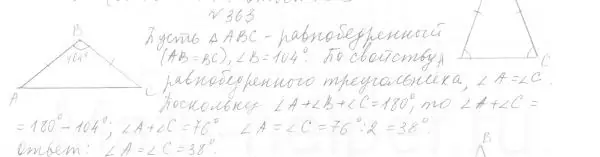 №363
B
104°
A
C
Пусть △ABC - равнобедренный
(AB=BC), ∠B=104°. По свойству
равнобедренного треугольника, ∠A=∠C.
Поскольку ∠A+∠B+∠C=180°, то ∠A+∠C=
=180°-104°; ∠A+∠C=76° ∠A=∠C=76°:2=38°.
Ответ: ∠A=∠C=38°.
C
B